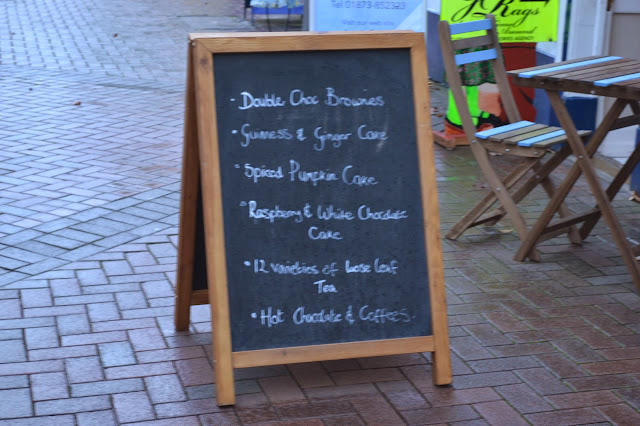 Tel 01873-852323
Visit our web site
Rags
- Double Choc Brownies
• Guiness & Ginger Cake
• Spiced Pumpkin Cake
• Raspberry & White Chocolate
Cake
• 12 varieties of loose leaf
Tea
• Hot Chocolate & Coffees